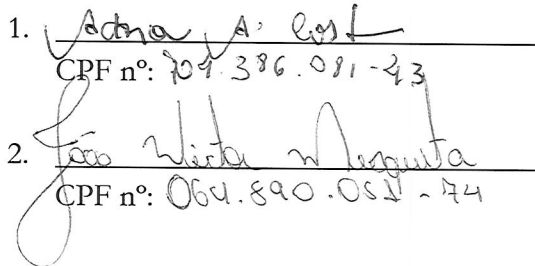 1. Adna A. Cost
CPF nº: 701.386.081-43
2. João Victor Mesquita
CPF nº: 064.890.051-74